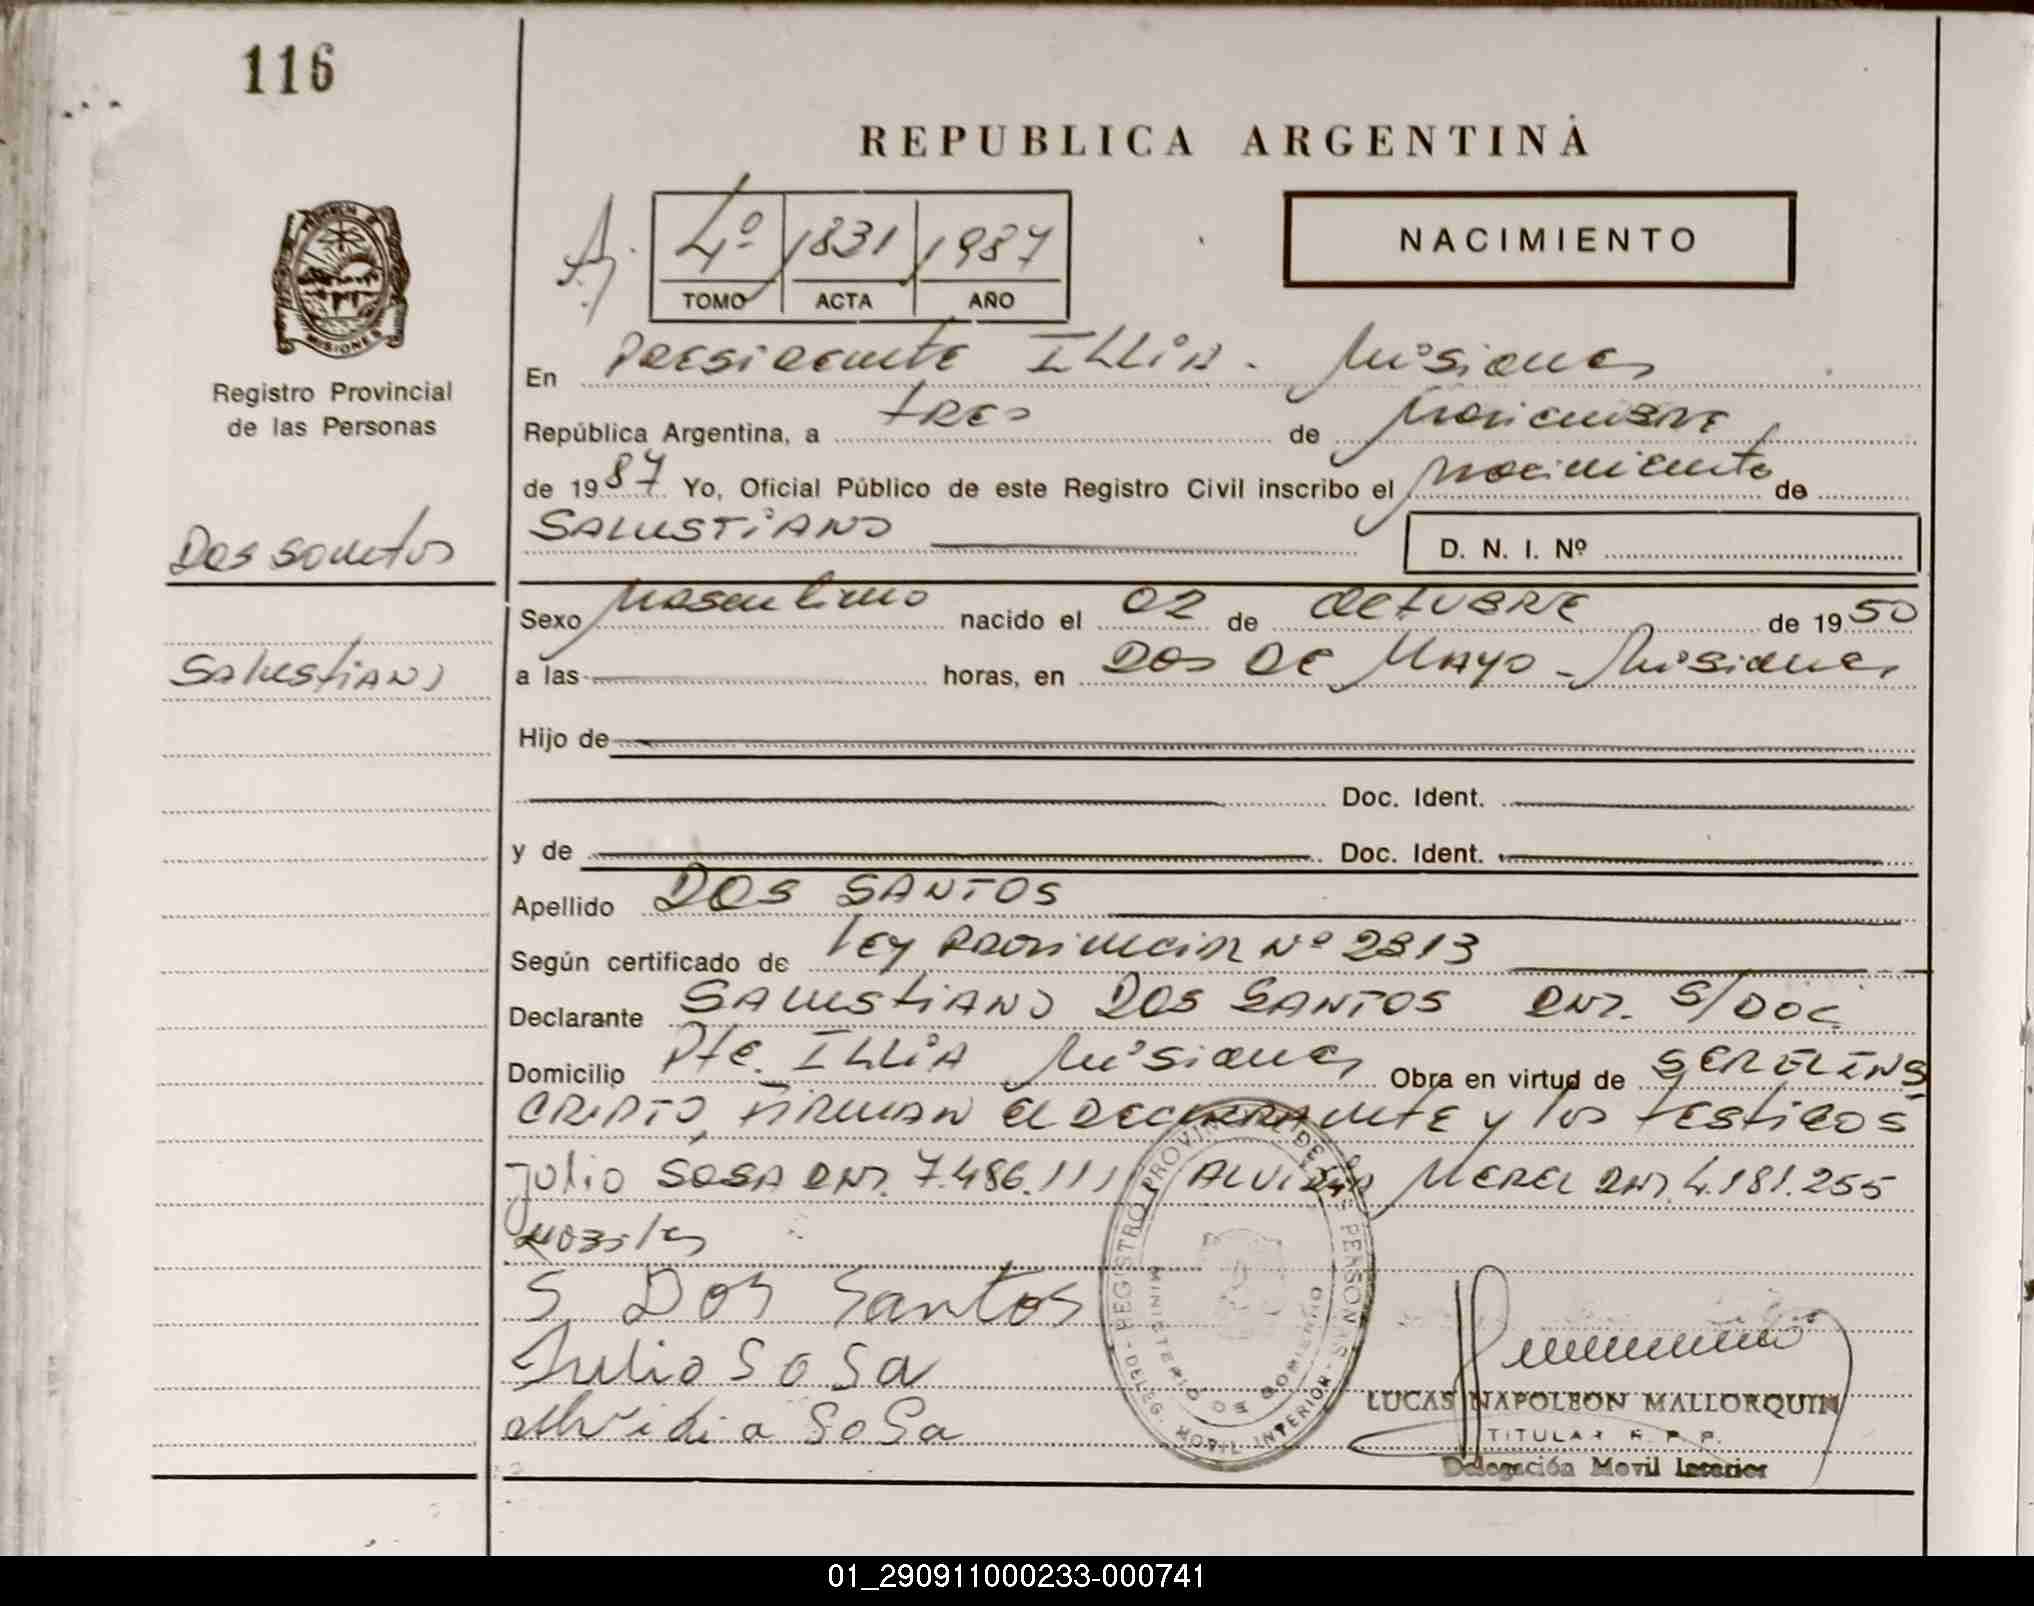 116
REPUBLICA ARGENTINA
4º 1831 1987
TOMO ACTA AÑO
NACIMIENTO
MISIONES
Registro Provincial
de las Personas
En Presidente ILLIA - Misiones
República Argentina, a tres de Noviembre
de 1987 Yo, Oficial Público de este Registro Civil inscribo el nacimiento de
SALUSTIANO
D. N. I. Nº
Dos Santos
Salustiano
Sexo Masculino nacido el 02 de OCTUBRE de 1950
a las horas, en DOS DE MAYO - Misiones
Hijo de
Doc. Ident.
y de Doc. Ident.
Apellido DOS SANTOS
Según certificado de Ley Provincial Nº 2813
Declarante SALUSTIANO DOS SANTOS DNI. S/DOC.
Domicilio Pte. ILLIA Misiones Obra en virtud de SER EL INS
CRIPTO, FIRMAN el DECLARANTE y los testigos
Julio SOSA DNI. 7.486.111 MEREL DNI. 4.181.255
S Dos Santos
Julio SoSa
Alvidia SoSa
REGISTRO PROVINCIAL DE LAS PERSONAS
MINISTERIO DE GOBIERNO
DELEG. MOVIL INTERIOR
LUCAS NAPOLEON MALLORQUIN
TITULAR R. P. P.
Delegación Movil Interior
01_290911000233-000741